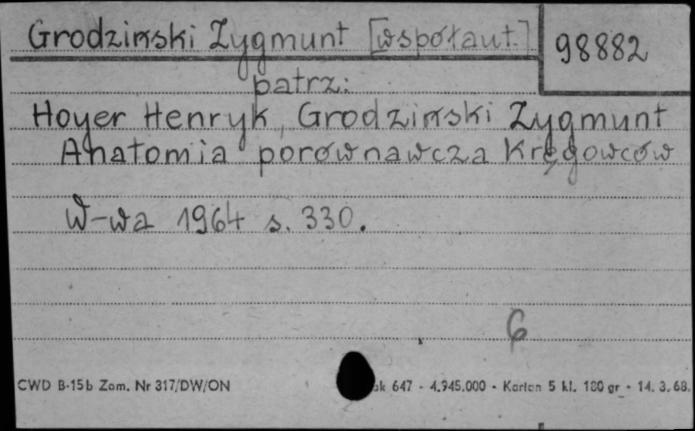 Grodziński Zygmunt [współaut.] 98882
patrz:
Hoyer Henryk, Grodziński Zygmunt
Anatomia porównawcza Kręgowców
W-wa 1964 s. 330.
6
CWD B-15b Zam. Nr 317/DW/ON 647 - 4.945.000 - Karton 5 kl. 180 gr - 14. 3. 68.